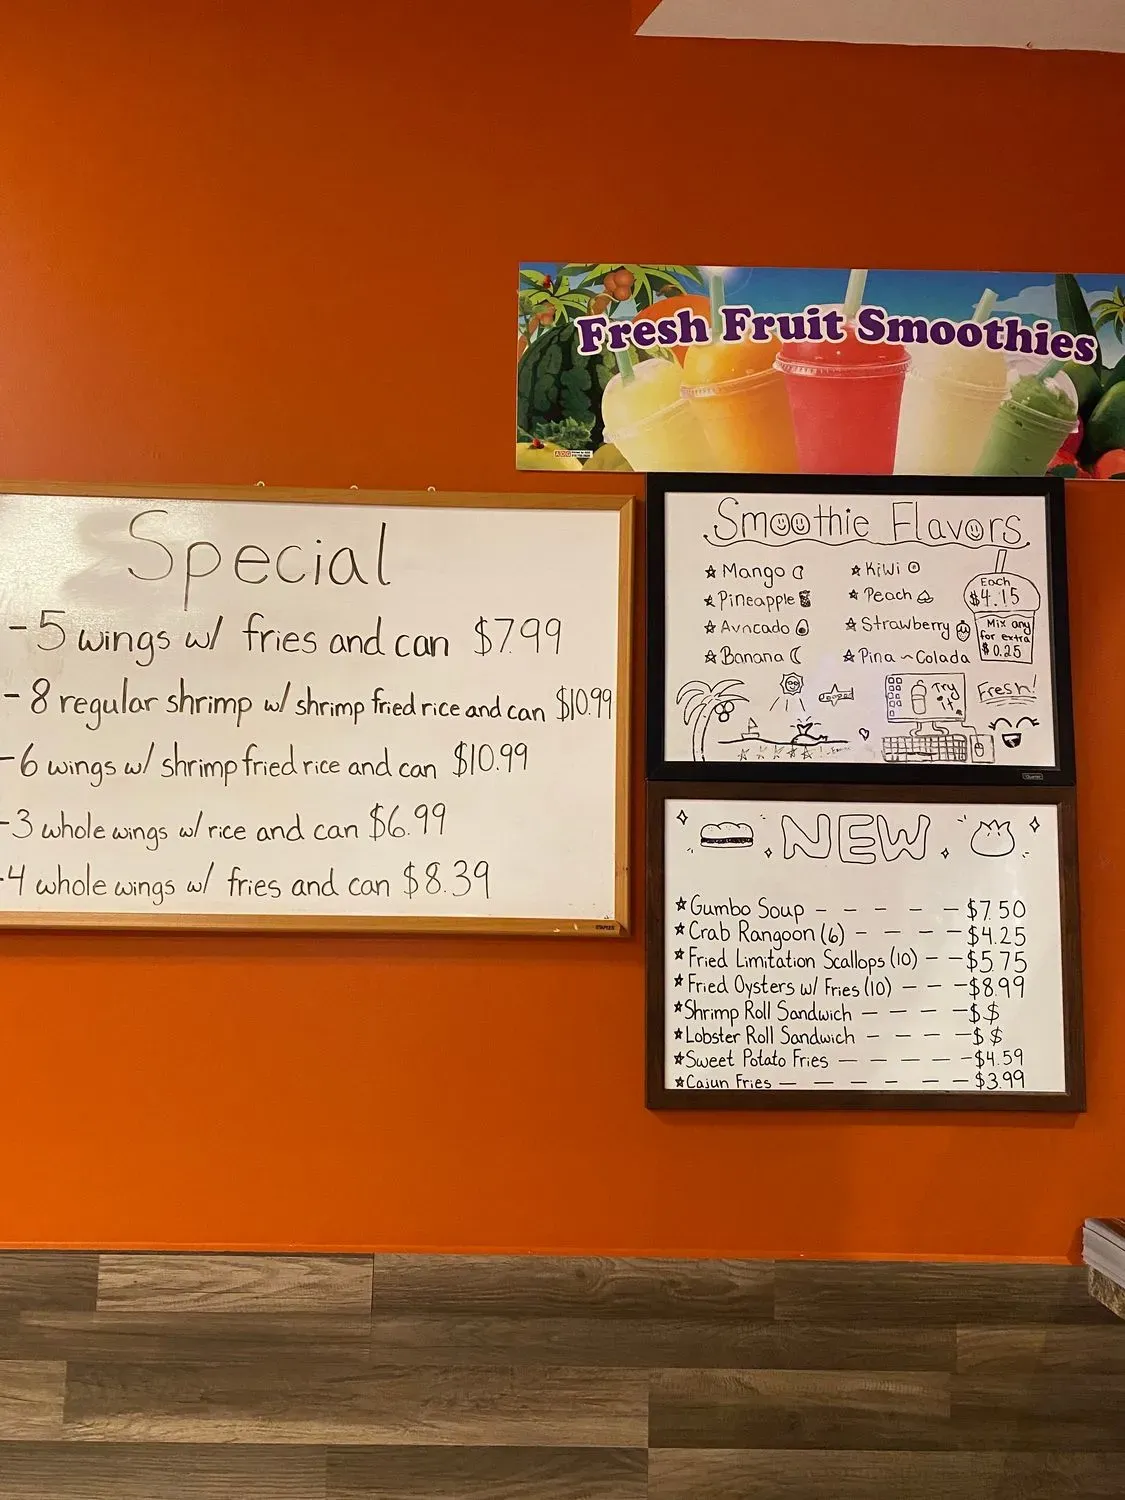 Fresh Fruit Smoothies
Special
-5 wings w/ fries and can $7.99
-8 regular shrimp w/ shrimp fried rice and can $10.99
-6 wings w/ shrimp fried rice and can $10.99
-3 whole wings w/ rice and can $6.99
-4 whole wings w/ fries and can $8.39
STAPLES
Smoothie Flavors
☆ Mango
☆ Pineapple
☆ Avncado
☆ Banana
☆ Kiwi
☆ Peach
☆ Strawberry
☆ Pina ~ Colada
Each
$4.15
Mix any
for extra
$0.25
Try
it
Fresh!
Quartet
NEW
☆ Gumbo Soup - - - - - $7.50
☆ Crab Rangoon (6) - - - - $4.25
☆ Fried Limitation Scallops (10) - - $5.75
☆ Fried Oysters w/ Fries (10) - - - $8.99
☆ Shrimp Roll Sandwich - - - - $ $
☆ Lobster Roll Sandwich - - - - $ $
☆ Sweet Potato Fries - - - - - $4.59
☆ Cajun Fries - - - - - - $3.99